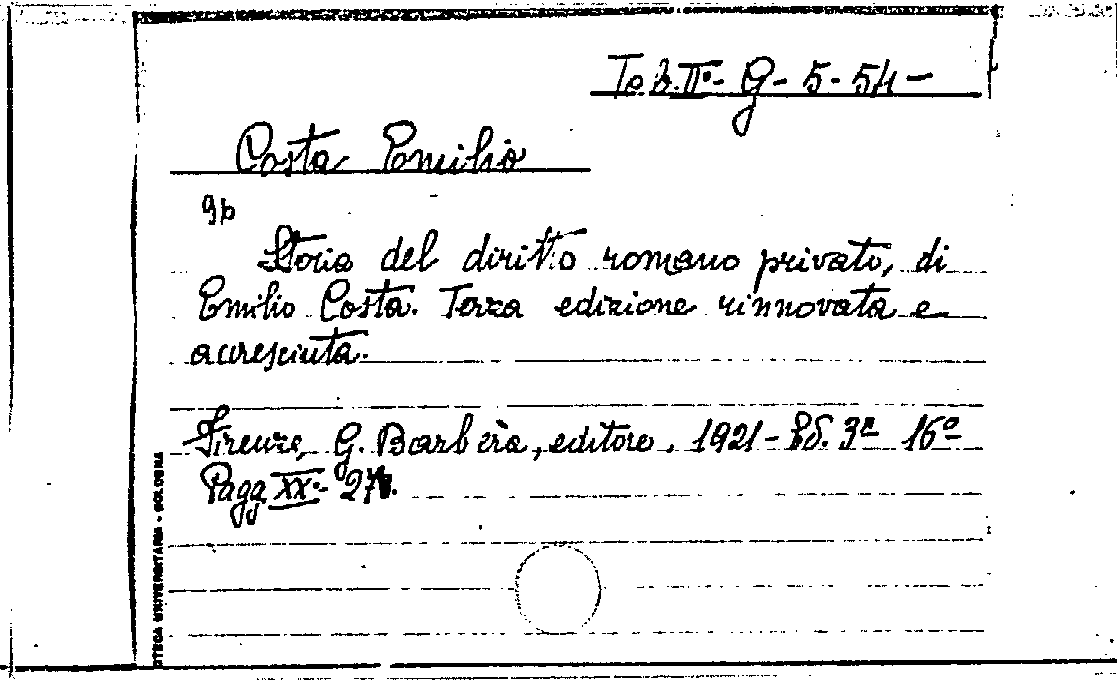 Tab. IIº - G - 5 - 54 -
Costa Emilio
9b
Storia del diritto romano privato, di
Emilio Costa. Terza edizione rinnovata e
accresciuta.
Firenze, G. Barbèra, editore, 1921 - Ed. 3ª 16º
Pagg XXº -
OTECA UNIVERSITARIA - BOLOGNA